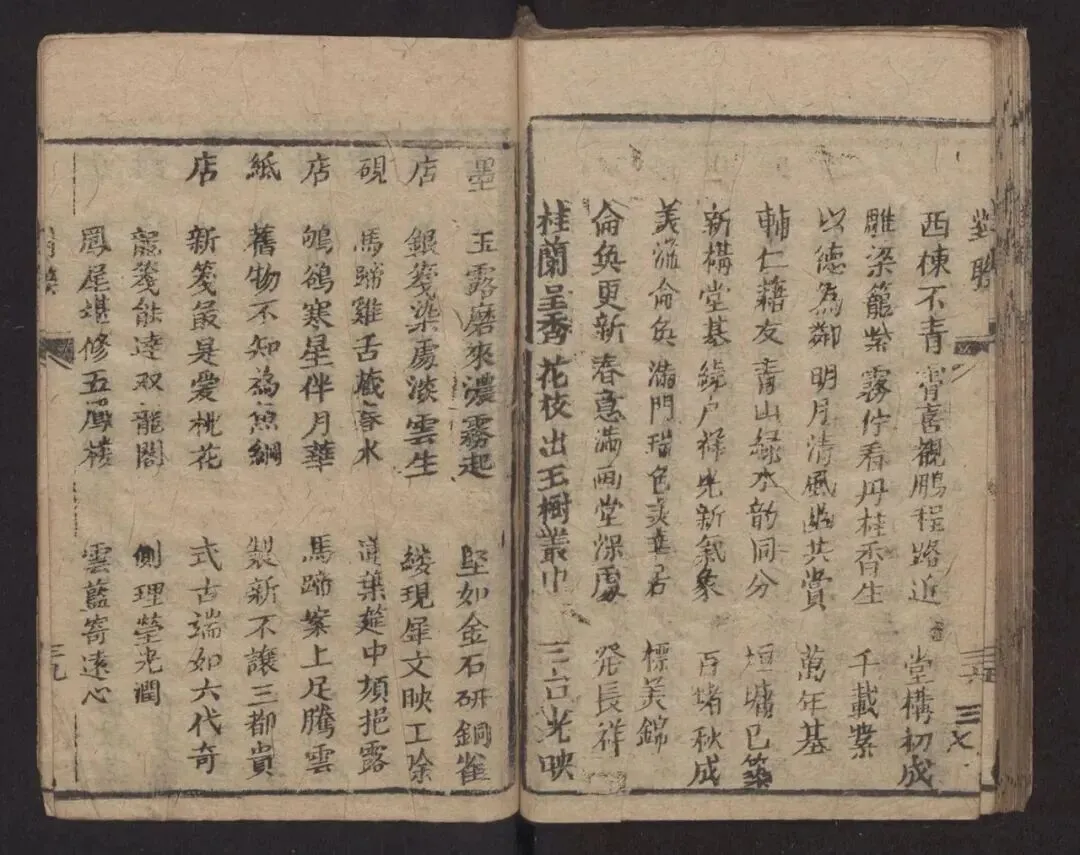 對聯
西棟不青雲喜觀鵬程路近 堂構初成
雕梁籠紫霧佇看丹桂香生 千載業
以德為鄰明月清風共賞 萬年基
輔仁藉友青山緑水韵同分 垣墉已築
新構堂基繞戶祥光新氣象 百堵秋成
美流侖奐滿門瑞色 居 標美錦
侖奐更新春意滿画堂深處 発長祥
桂蘭呈秀花枝出玉樹叢中 三台光映
三七
墨 玉露磨來濃霧起 堅如金石研銅雀
店 銀箋染處淡雲生 綾現犀文映工除
硯 馬蹄雞舌蔵春水 葉筵中挹露
店 鴝鵒寒星伴月華 馬蹄案上足騰雲
紙 舊物不知為魚網 製新不讓三都貴
店 新箋最是爱桃花 式古端如六代奇
龍箋能達双龍閣 側理瑩光潤
鳳尾堪修五鳳楼 雲藍寄遠心
三九